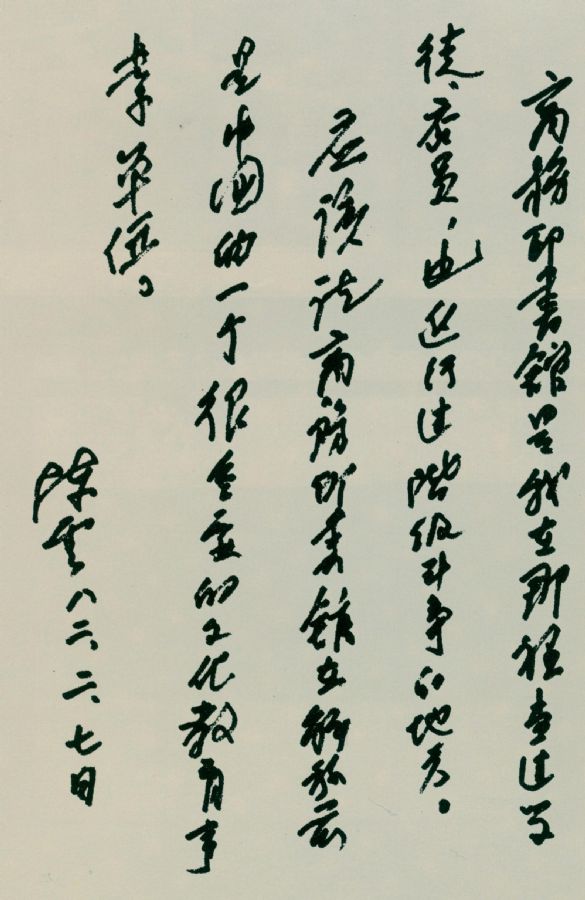 商務印書館是我在那裡当过学
徒、店员,也进行过階级斗争的地方。
应该说商務印書館在解放前
是中国的一个很重要的文化教育事
業单位。
陈雲 八二、二、七日